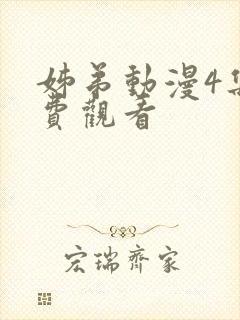 姊弟動漫4集
費觀看
宏瑞齊家